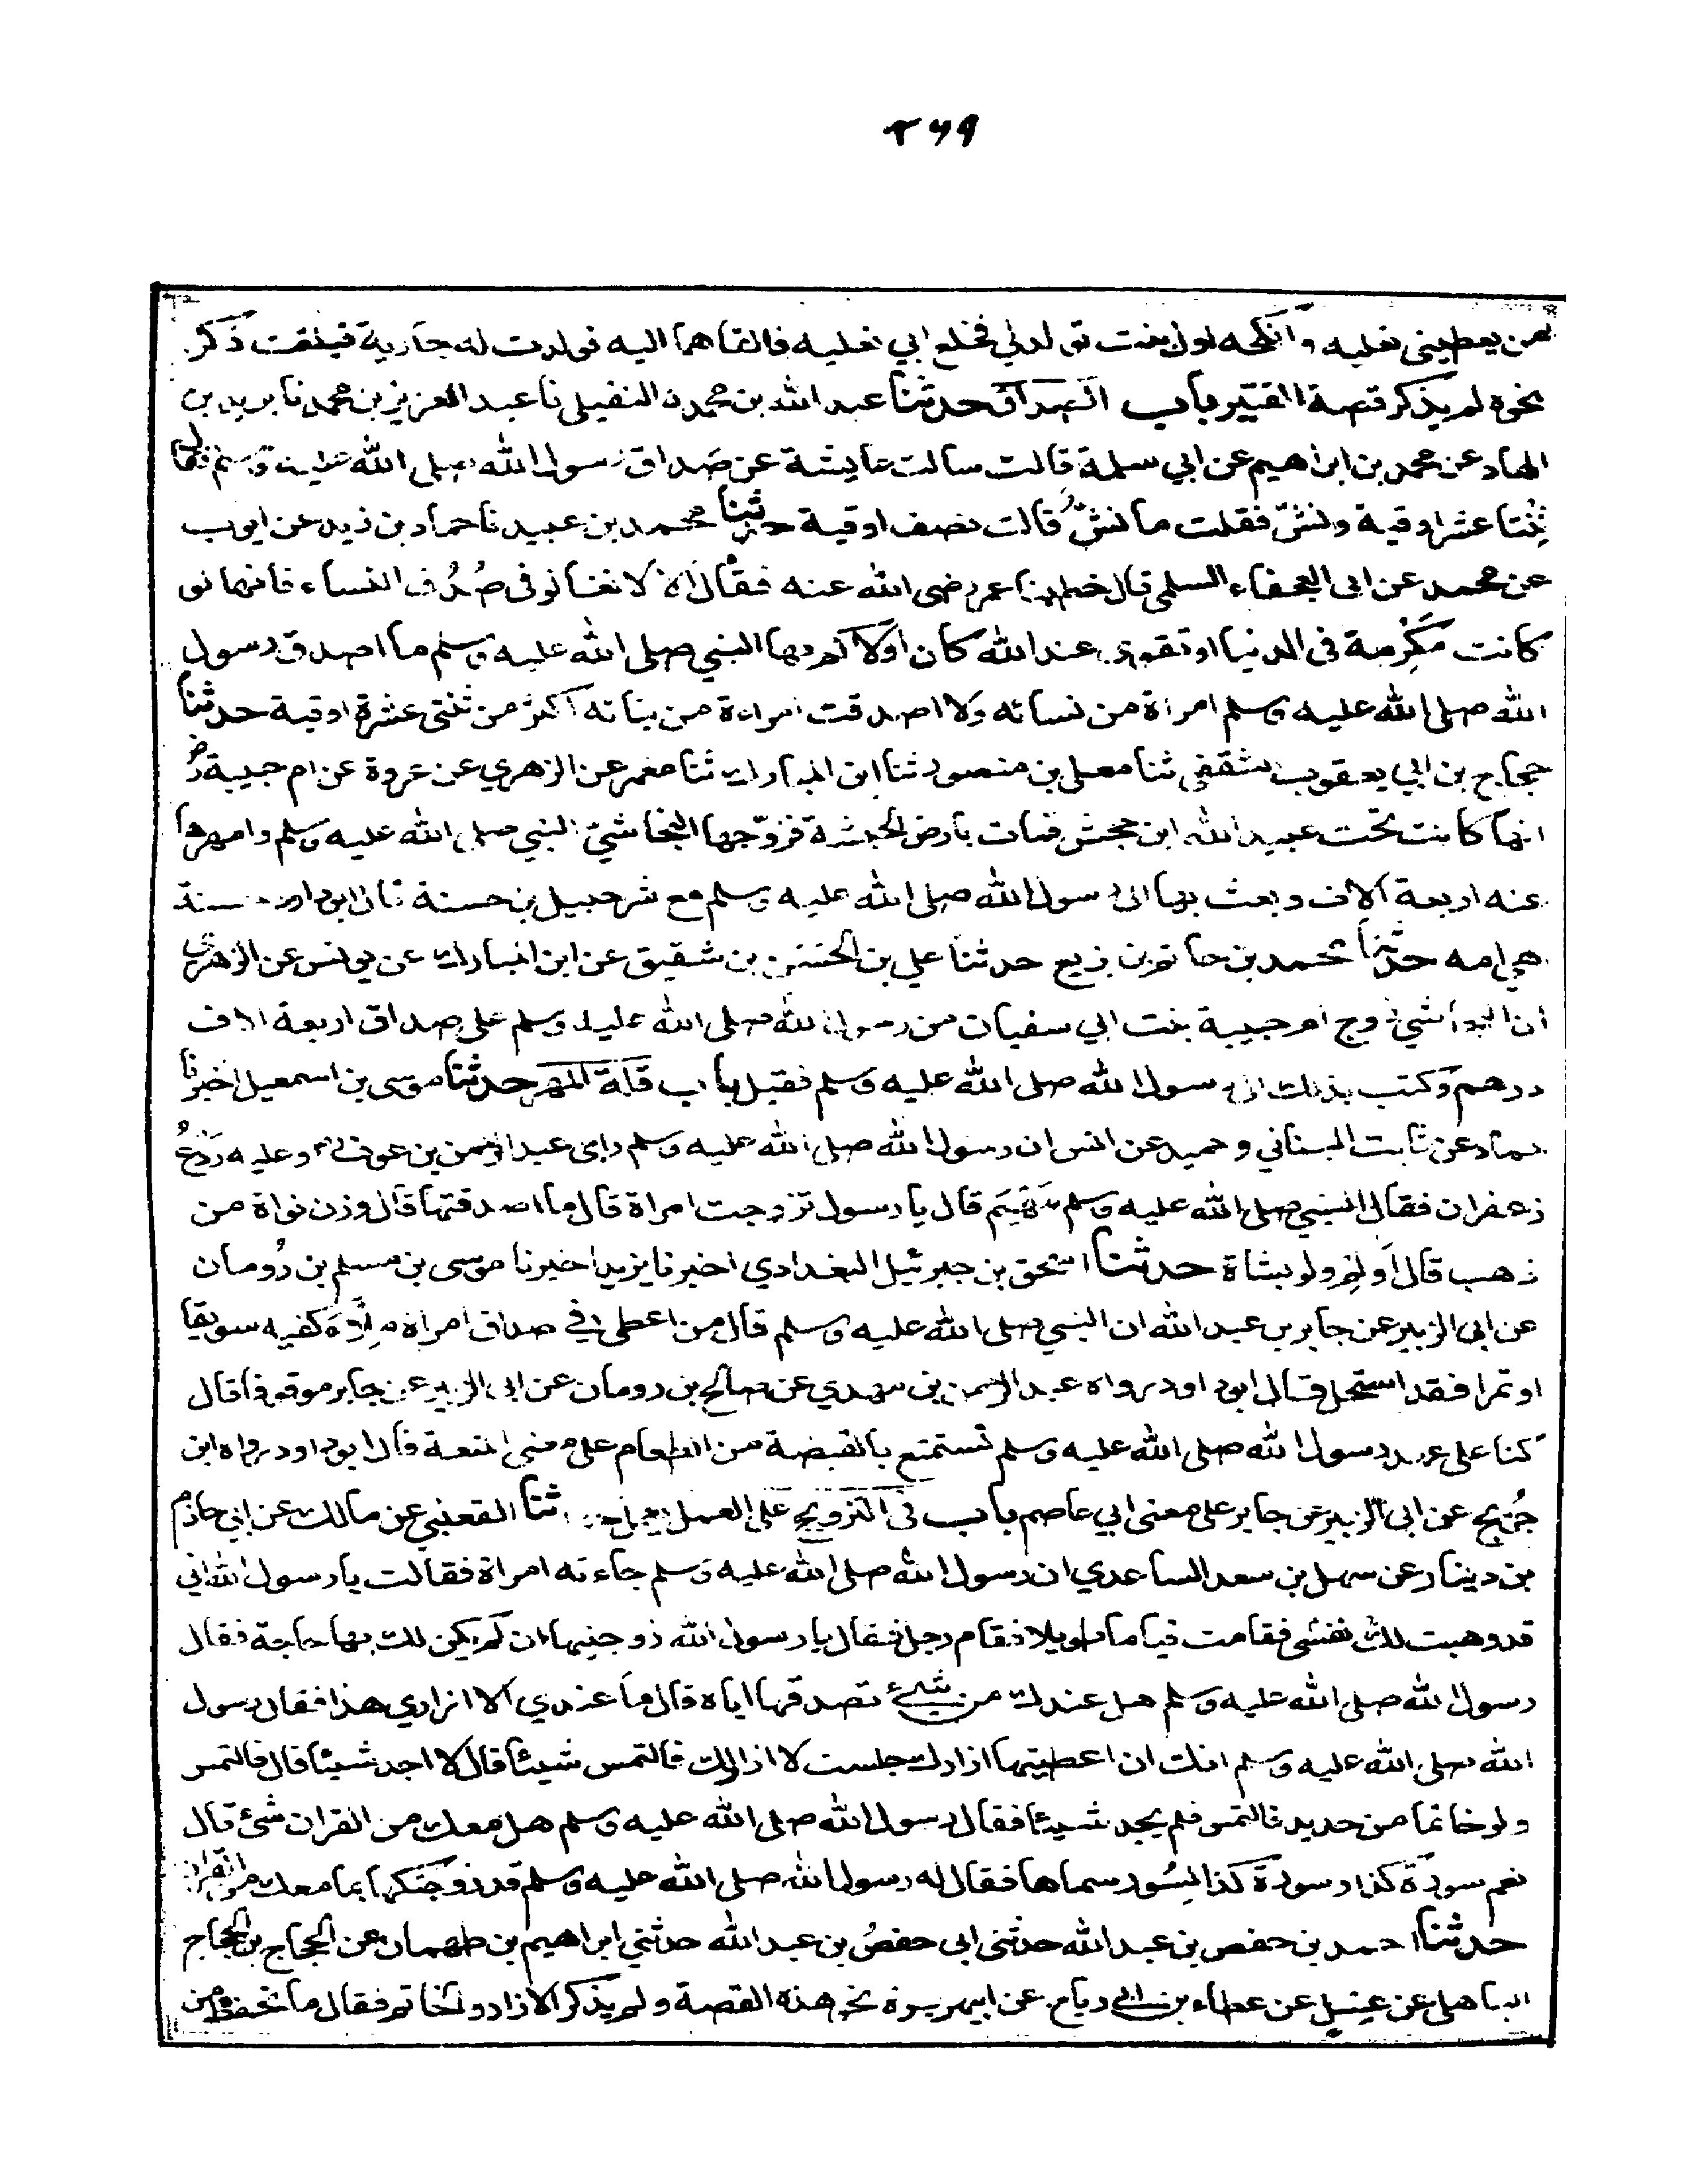 ٢٦٩
من يعطيني نعليه وانكحه اول بنت تولد لي فخلع ابي نعليه فالقاهما اليه فولدت له جارية فبلغت ذكر
نحوه لم يذكر قصة القتير باب الصداق حدثنا عبد الله بن محمد النفيلي نا عبد العزيز بن محمد نا يزيد بن
الهاد عن محمد بن ابراهيم عن ابي سلمة قالت سالت عايشة عن صداق رسول الله صلى الله عليه وسلم فقال
ثنتا عشر اوقية ونش فقلت ما نش قالت نصف اوقية حدثنا محمد بن عبيد نا حماد بن زيد عن ايوب
عن محمد عن ابى العجفاء السلمي قال خطبنا عمر رضى الله عنه فقال الا لا تغالو فى صُدُف النساء فانها لو
كانت مَكرُمة فى الدنيا او تقوى عند الله كان اولاكم بها النبي صلى الله عليه وسلم ما اصدق رسول
الله صلى الله عليه وسلم امراة من نسائه ولا اصدقت امراءة من بناته اكثر من ثنتى عشرة اوقية حدثنا
حجاج بن ابي يعقوب الثقفي ثنا معلى بن منصور ثنا ابن المبارك ثنا معمر عن الزهري عن عروة عن ام حبيبة رض
انها كانت تحت عبيد الله ابن جحش فمات بارض الحبشة فزوّجها النجاشيّ النبي صلى الله عليه وسلم وامهرها
عنه اربعة آلاف وبعث بها الى رسول الله صلى الله عليه وسلم مع شرحبيل بن حسنة قال ابو داود حسنة
هي امه حدثنا محمد بن حاتم بن بزيع حدثنا علي بن الحسن بن شقيق عن ابن المبارك عن يونس عن الزهري
ان النجاشي زوج ام حبيبة بنت ابي سفيان من رسول الله صلى الله عليه وسلم على صداق اربعة الاف
درهم وكتب بذلك الى رسول الله صلى الله عليه وسلم فقبل باب قلة المهر حدثنا موسى بن اسمعيل اخبرنا
حماد عن ثابت البناني وحميد عن انس ان رسول الله صلى الله عليه وسلم راى عبد الرحمن بن عوف وعليه رَدْعُ
زعفران فقال النبي صلى الله عليه وسلم مَهْيَم قال يا رسول تزوجت امراة قال ما اصدقتها قال وزن نواة من
ذهب قال اَولِم ولو بشاة حدثنا اسحق بن جبرئيل البغدادي اخبرنا يزيد اخبرنا موسى بن مسلم بن رُومان
عن ابى الزبير عن جابر بن عبد الله ان النبي صلى الله عليه وسلم قال من اعطى في صداق امراة مِلْءَ كفيه سويقا
او تمرا فقد استحل قال ابو داود رواه عبد الرحمن بن مهدي عن صالح بن رومان عن ابى الزبير عن جابر موقوفا قال
كنا على عهد رسول الله صلى الله عليه وسلم نستمتع بالقبضة من الطعام على معنى المتعة قال ابو داود رواه ابن
جُريج عن ابى الزبير عن جابر على معنى ابي عاصم باب فى التزويج على العمل يعمل حدثنا القعنبي عن مالك عن ابي حازم
بن دينار عن سهل بن سعد الساعدي ان رسول الله صلى الله عليه وسلم جاءته امراة فقالت يا رسول الله اني
قد وهبت لك نفسى فقامت قياما طويلا فقام رجل فقال يا رسول الله زوجنيها ان لم يكن لك بها حاجة فقال
رسول الله صلى الله عليه وسلم هل عندك من شيء تصدقها اياه قال ما عندي الا ازاري هذا فقال رسول
الله صلى الله عليه وسلم انك ان اعطيتها ازارك جلست لا ازار لك فالتمس شيئا قال لا اجد شيئا قال فالتمس
ولو خاتما من حديد فالتمس فلم يجد شيئا فقال رسول الله صلى الله عليه وسلم هل معك من القران شئ قال
نعم سورة كذا وسورة كذا لسُور سماها فقال له رسول الله صلى الله عليه وسلم قد زوجتكها بما معك من القران
حدثنا احمد بن حفص بن عبد الله حدثنى ابى حفصُ بن عبد الله حدثني ابراهيم بن طهمان عن الحجاج بن الحجاج
الباهلى عن عِسلٍ عن عطاء بن ابي رباح عن ابيهريرة نحو هذه القصة ولم يذكر الازار والخاتم فقال ما تحفظ من